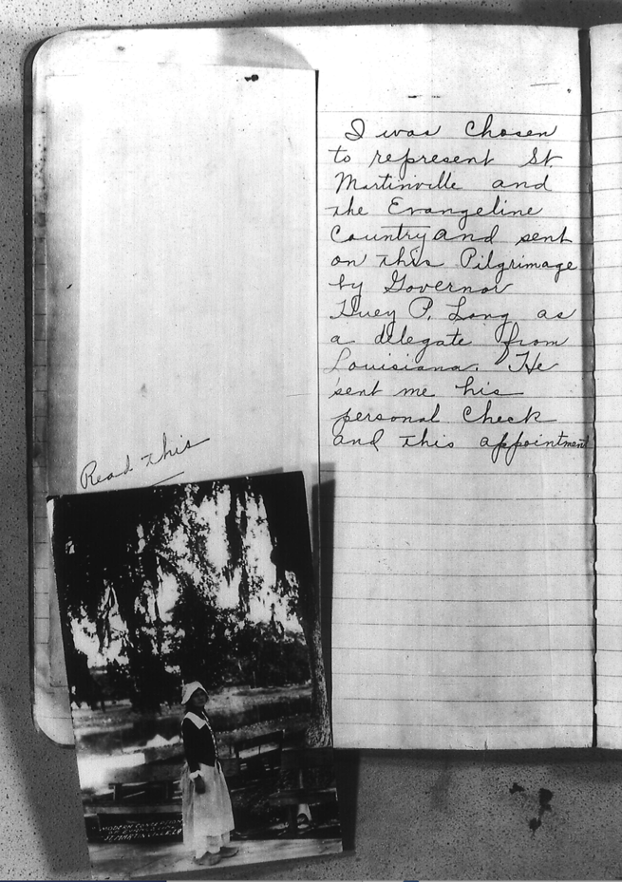 Read this
I was chosen
to represent St.
Martinville and
the Evangeline
Country and sent
on this Pilgrimage
by Governor
Huey P. Long as
a delegate from
Louisiana. He
sent me his
personal check
and this appointment